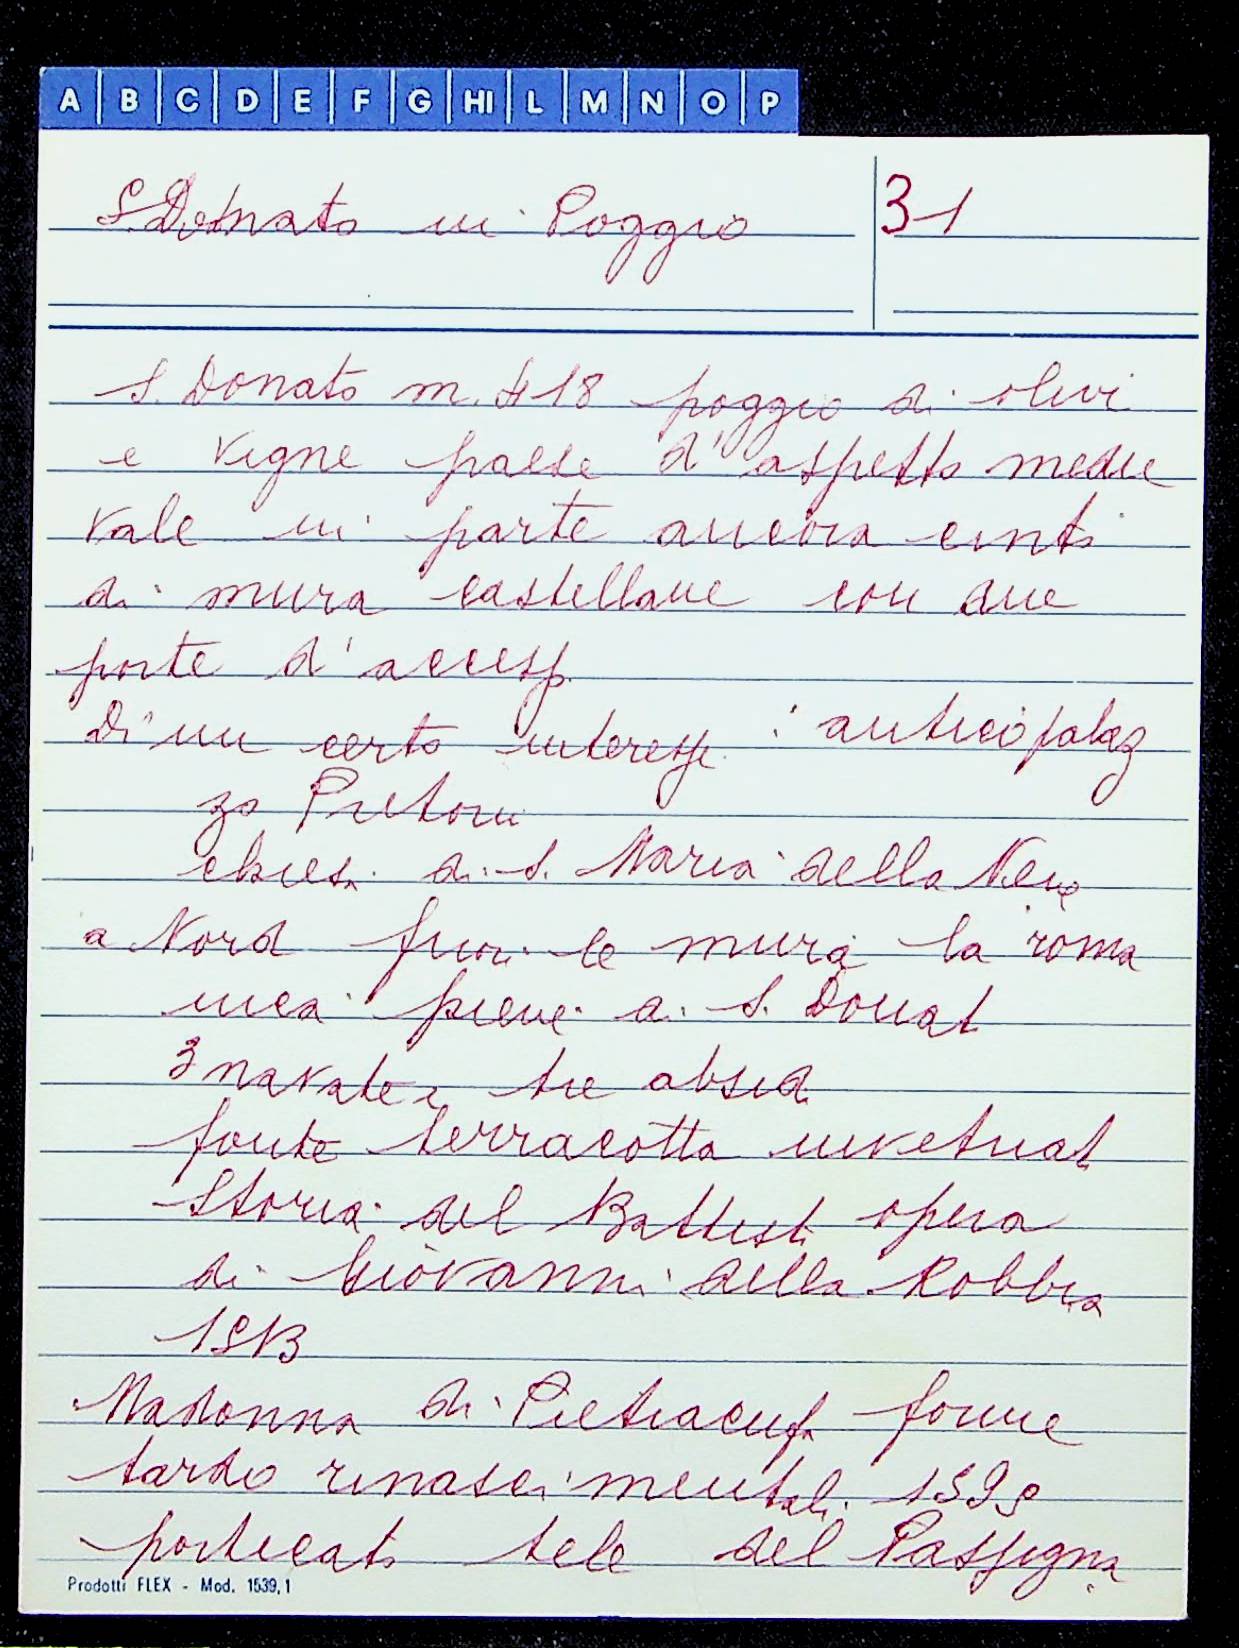 A B C D E F G HI L M N O P
S. Donato in Poggio 31
S. Donato m. 418 poggio di olivi
e vigne paese d'aspetto medie
vale in parte ancora cinto
di mura castellane con due
porte d'accesso
Di un certo interesse: antico palaz
zo Pretorio
chiesa di S. Maria della Neve
a Nord fuori le mura la roma
nica pieve di S. Donat
3 navate e tre absid
fonte terracotta invetriat
Storia del Battista opera
di Giovanni della Robbia
1513
Madonna di Pietracupa forme
tardo rinascimentali
porticato tele del Passigna
Prodotti FLEX - Mod. 1539,1